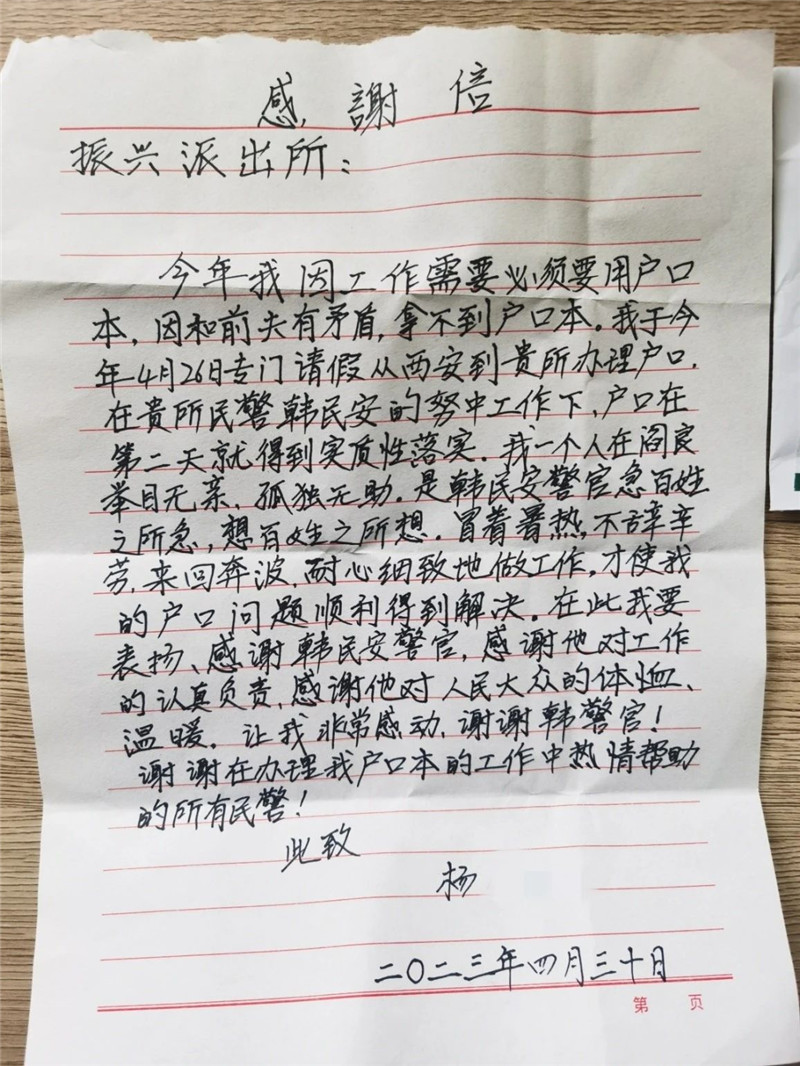 感謝信
振兴派出所：
今年我因工作需要必须要用户口
本，因和前夫有矛盾，拿不到户口本。我于今
年4月26日专门请假从西安到贵所办理户口.
在贵所民警韩民安的努中工作下、户口在
第二天就得到实质性落实.我一个人在阎良
举目无亲、孤独无助.是韩民安警官急百姓
之所急，想百姓之所想.冒着暑热，不辞辛
劳，来回奔波，耐心细致地做工作，才使我
的户口问题顺利得到解决。在此我要
表扬、感谢韩民安警官，感谢他对工作
的认真负责、感谢他对人民大众的体恤、
温暖。让我非常感动、谢谢韩警官！
谢谢在办理我户口本的工作中热情帮助
的所有民警！
此致
杨
二〇二三年四月三十日
第 页